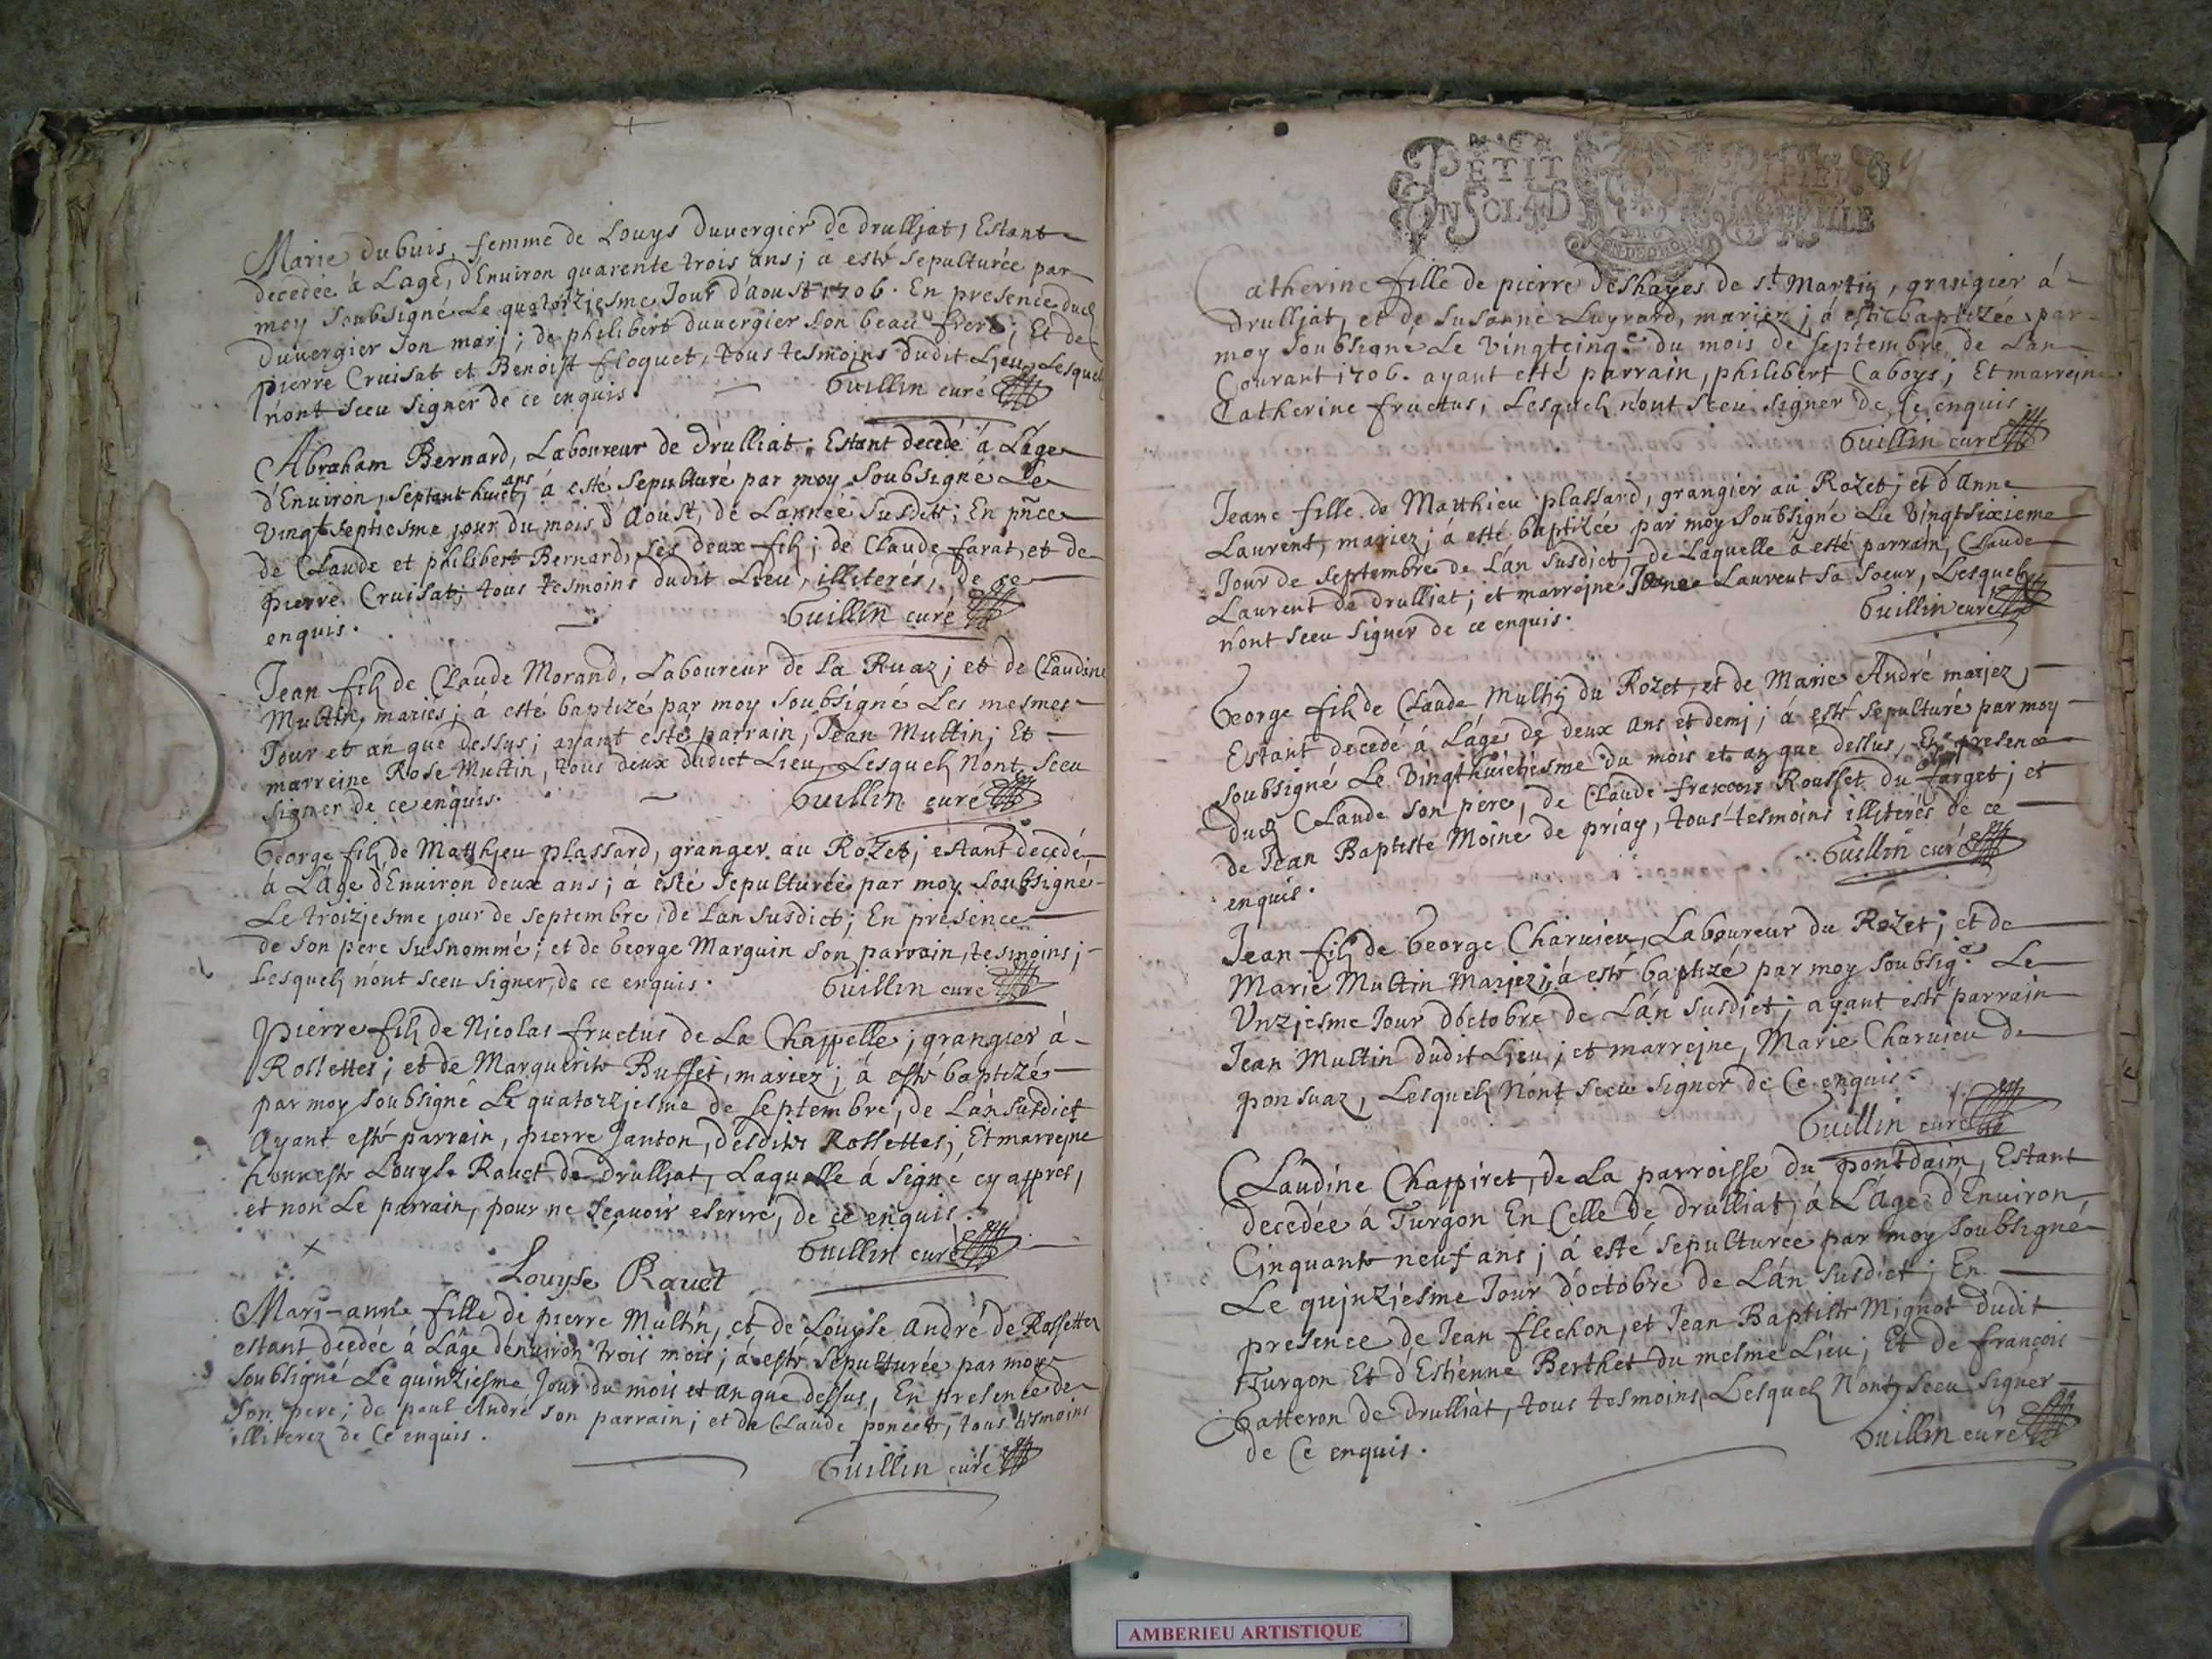 Marie dubuis, femme de Louys duvergier de drulljat, Estant
decedée à Lage, dEnviron quarente trois ans; a esté sepulturée par
moy soubsigné Le quatorzjesme Jour d'aoust 1706. En presence dud
duvergier son marj; de philibert duvergier son beau frere; Et de
pierre Cruisat et Benoist floquet, tous tesmoins dudit Ljeu, Lesquel
nont sceu signer de ce enquis.
Guillin curé
Abraham Bernard, Laboureur de drulliat; Estant decedé à Läge
d'Environ, septant huict, ans à esté sepulturé par moy soubsigné Le
vingt septiesme jour du mois d'Aoust, de Lannée susditte; En pñce
de Claude et philibert Bernard, ses deux fils; de Claude farat, et de
pierre Cruisat; tous tesmoins dudit Lieu, illiterés, de ce
enquis.
Guillin curé
Jean fils de Claude Morand, Laboureur de la Ruaz; et de Claudine
Multin, mariés; à esté baptizé par moy soubsigné Les mesmes
Jour et an que dessus; ayant esté parrain, Jean Multin; Et
marreine Rose Multin, tous deux dudict Lieu, Lesquels Nont sceu
signer de ce enquis.
Guillin curé
George fils de Matthjeu plassard, granger au Rozet; estant decedé,
à Läge d'Environ deux ans; à esté sepulturée par moy soubsigné
Le troizjesme jour de septembre de Lan susdict; En presence
de son pere susnommé; et de George Marguin son parrain, tesmoins;
Lesquels nont sceu signer, de ce enquis.
Guillin curé
Pierre fils de Nicolas fructus de La Chappelle; grangier à
Rossettes; et de Marguerite Buffet, mariez; à esté baptizé
par moy soubsigné Le quatorzjesme de septembre, de Lan susdict
Ayant esté parrain, pierre Janton, desdites Rossettes; Et marrejne
honneste Louyse Ravet de drulljat, Laquelle à signé cy appres,
et non Le parrain, pour ne scavoir escrire, de ce enquis.
Guillin curé
Louyse Ravet
Marj-anne fille de pierre Multin, et de Louyse André de Rossettes
estant decedée à Läge denviron trois mois; à esté sepulturée par moy
soubsigné Le quinziesme Jour du mois et an que dessus, En presence de
son pere; de paul André son parrain; et de Claude poncet, tous tesmoins
illiterez de ce enquis.
Guillin curé
PETIT PAPIER
UN SOL 4 D LA FEUILLE
Catherine fille de pierre deshayes de st Martin, grangier à
drulljat, et de Susanne Luyrard, mariez; à esté baptizée par
moy soubsigné Le vingtcinqe du mois de septembre de Lan
Courant 1706. ayant esté parrain, philibert Caboys; Et marrejne
Catherine fructus, Lesquels n'ont sceu signer de ce enquis.
Guillin curé
Jeane fille de Matthieu plassard, grangier au Rozet; et d'Anne
Laurent, mariez; à esté baptizée par moy soubsigné Le vingtsixieme
Jour de septembre de Lan susdict, de Laquelle à esté parrain, Claude
Laurent de drulliat; et marrejne Jeane Laurent sa soeur, Lesquels
n'ont sceu signer de ce enquis.
Guillin curé
George fils de Claude Multin du Rozet, et de Marie André mariez,
Estant decedé à Läge de deux ans et demj; à esté sepulturé par moy
soubsigné Le vingthuictiesme du mois et an que dessus, En presence
dud Claude son pere, de Claude françois Rousset du farget; et
de Jean Baptiste Moine de priay, tous tesmoins illiterés de ce
enquis.
Guillin curé
Jean fils de George Charvieu, Laboureur du Rozet; et de
Marie Multin Mariez; à esté baptizé par moy soubsigé Le
Vnzjesme Jour d'octobre de Lan susdict; ayant esté parrain
Jean Multin dudit Ljeu; et marrejne, Marie Charvieu de
ponsuaz, Lesquels Nont sceu signer de Ce enquis.
Guillin curé
Claudine Chappiret, de La parroisse du pontdain, Estant
decedée à Turgon En Celle de drulliat, à Läge d'Environ
Cinquante neuf ans; à esté sepulturée par moy soubsigné
Le quinzjesme Jour d'octobre de Lan susdict; En
presence de Jean flechon, et Jean Baptiste Mignot dudit
Turgon Et d'Estienne Berthet du mesme Lieu; Et de françois
Gatteron de drulliat, tous tesmoins, Lesquels Nont sceu signer
de Ce enquis.
Guillin curé
AMBERIEU ARTISTIQUE